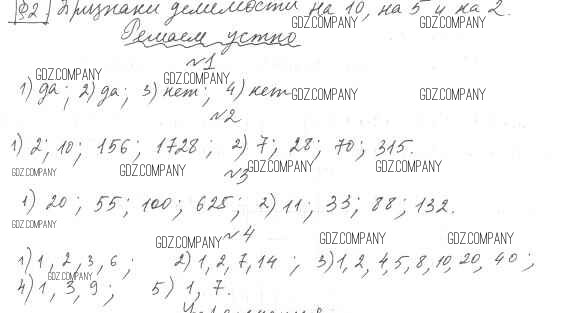 §2. Признаки делимости на 10, на 5 и на 2.
GDZ.COMPANY GDZ.COMPANY
Решаем устно
№1
GDZ.COMPANY
1) да; 2) да; 3) нет; 4) нет
GDZ.COMPANY GDZ.COMPANY
№2
1) 2; 10; 156; 1728; 2) 7; 28; 70; 315.
GDZ.COMPANY GDZ.COMPANY GDZ.COMPANY GDZ.COMPANY
№3
1) 20; 55; 100; 625; 2) 11; 33; 88; 132.
GDZ.COMPANY
№4
GDZ.COMPANY GDZ.COMPANY GDZ.COMPANY
1) 1, 2, 3, 6; 2) 1, 2, 7, 14; 3) 1, 2, 4, 5, 8, 10, 20, 40;
GDZ.COMPANY
4) 1, 3, 9; 5) 1, 7.